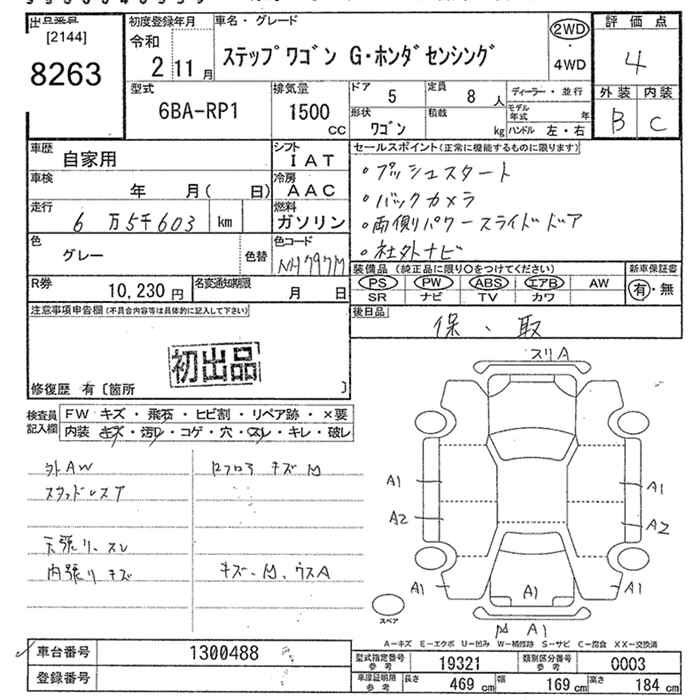 出品番号 初度登録年月 車名・グレード 2WD 評価点
[2144] 令和 ステップワゴン G・ホンダセンシング 4WD 4
8263 2年 11月 外装 内装
型式 排気量 ドア 5 定員 8人 ディーラー・並行 B C
6BA-RP1 1500cc 形状 ワゴン 積載 kg モデル年式 年
ハンドル 左・右
車歴 自家用 シフト IAT セールスポイント(正常に機能するものに限ります)
車検 年 月( 日) 冷房 AAC ・プッシュスタート
走行 6万5千603 km 燃料 ガソリン ・バックカメラ
・両側パワースライドドア
色 グレー 色替 色コード NH797M ・社外ナビ
R券 10,230円 名変通知期限 月 日 装備品 (純正品に限り○をつけてください) 新車保証書
PS PW ABS エアB AW 有・無
SR ナビ TV カワ
注意事項申告欄(不具合内容等は具体的に記入して下さい) 後日品 保、取
初出品
修復歴 有〔箇所 〕
検査員記入欄 FW キズ・飛石・ヒビ割・リペア跡・×要
内装 キズ・汚レ・コゲ・穴・スレ・キレ・破レ
スリA
外AW
スタッドレスT
天張リ、スレ
内張リ キズ キズ、凹、ウスA
A1 A1
A2 A2
A1 A1 A1
スペア
A1
A-キズ E-エクボ U-凹み W-補修跡 S-サビ C-腐食 XX-交換済
車台番号 1300488 型式指定番号 参考 19321 類別区分番号 参考 0003
登録番号 車庫証明用 参考 長さ 469cm 幅 169cm 高さ 184cm